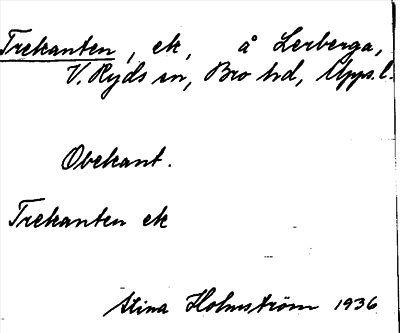 Trekanten, ek, å Lerberga,
V. Ryds sn, Bro hd, Upps.l.
Obekant.
Trekanten ek
Stina Holmström 1936